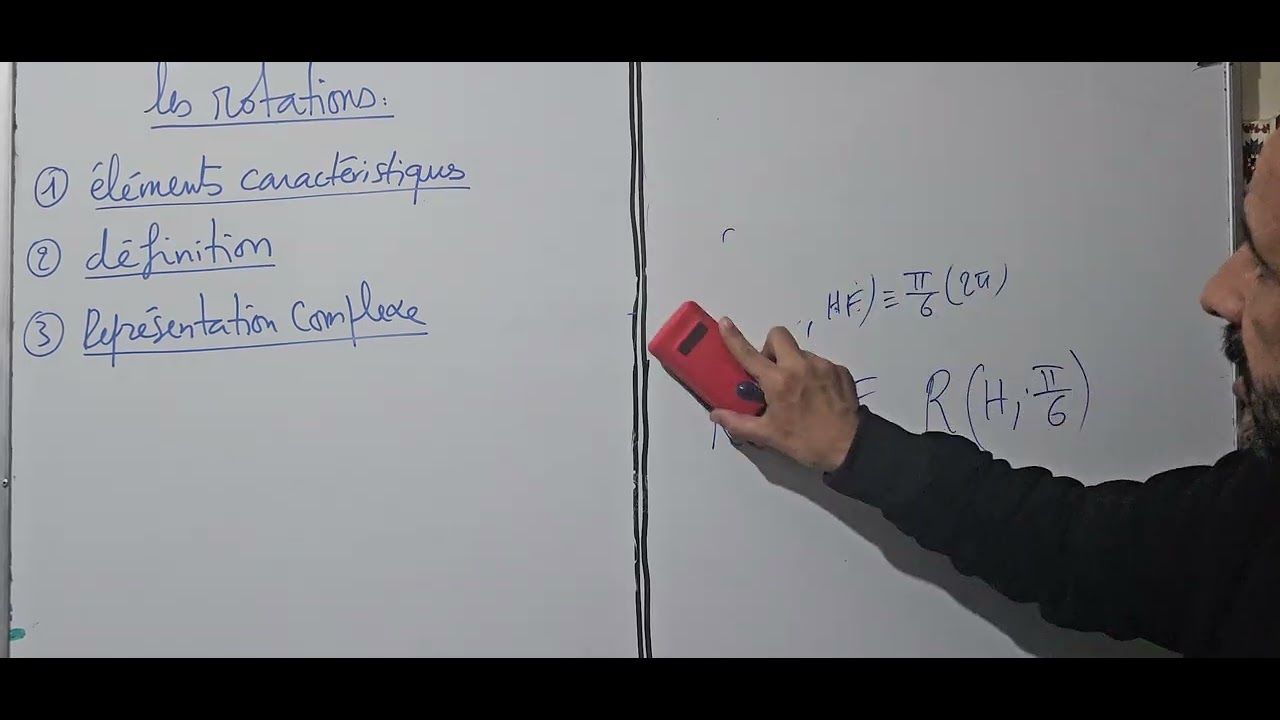 les rotations:
① éléments caractéristiques
② définition
③ Représentation Complexe
HE) ≡ π/6 (2π)
R(H; π/6)